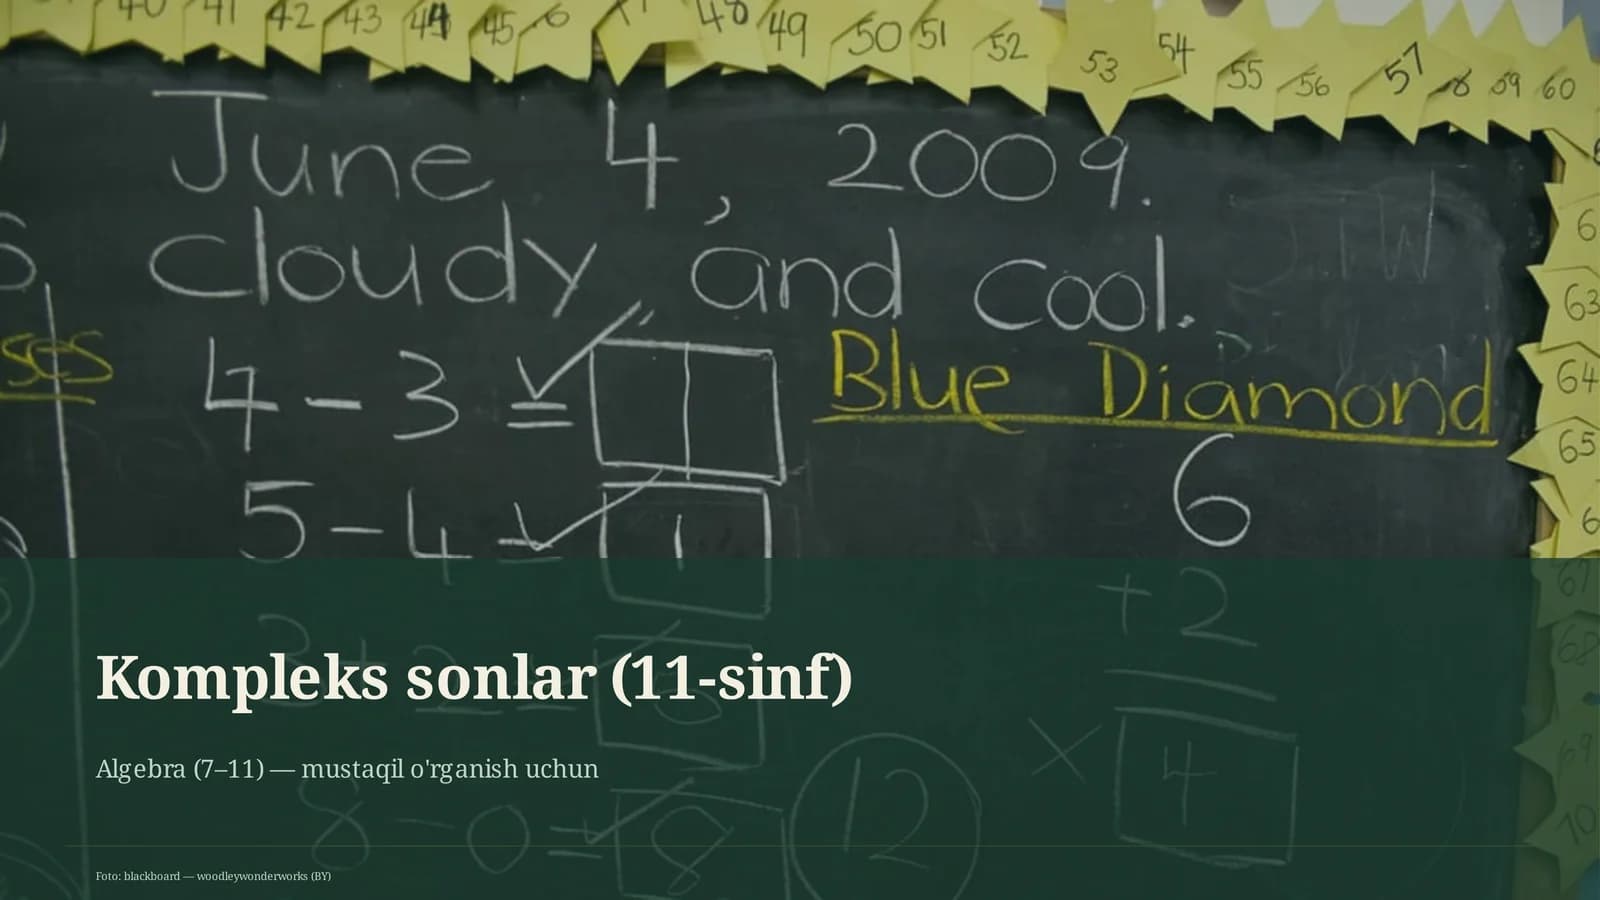 40 41 42 43 44 45 48 49 50 51 52 53 54 55 56 57 59 60
June 4, 2009.
Cloudy, and cool.
63
ses
4 - 3 =
Blue Diamond
64
65
5 - 4 = 1
6
+ 2
Kompleks sonlar (11-sinf)
Algebra (7–11) — mustaqil o'rganish uchun
8 - 0 = 8
12
x 4
Foto: blackboard — woodleywonderworks (BY)